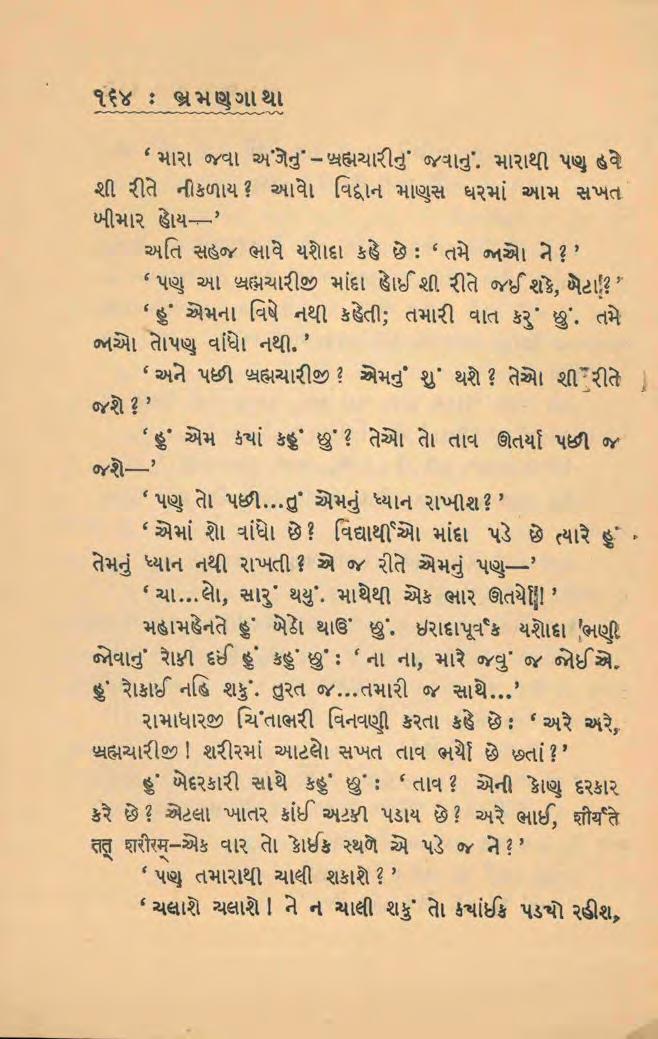 ૧૬૪ : ભ્રમણગાથા
‘ મારા જવા અંગેનું – બ્રહ્મચારીનું જવાનું. મારાથી પણ હવે
શી રીતે નીકળાય ? આવો વિદ્વાન માણસ ઘરમાં આમ સખત
બીમાર હોય—’
અતિ સહજ ભાવે યશોદા કહે છે : ‘ તમે જાઓ ને ? ’
‘ પણ આ બ્રહ્મચારીજી માંદા હોઈ શી રીતે જઈ શકે, બેટા!? ’
‘ હું એમના વિષે નથી કહેતી; તમારી વાત કરું છું. તમે
જાઓ તોપણ વાંધો નથી. ’
‘ અને પછી બ્રહ્મચારીજી ? એમનું શું થશે ? તેઓ શી રીતે
જશે ? ’
‘ હું એમ કયાં કહું છું ? તેઓ તો તાવ ઊતર્યા પછી જ
જશે—’
‘ પણ તો પછી...તું એમનું ધ્યાન રાખીશ ? ’
‘ એમાં શો વાંધો છે ? વિદ્યાર્થીઓ માંદા પડે છે ત્યારે હું
તેમનું ધ્યાન નથી રાખતી ? એ જ રીતે એમનું પણ—’
‘ ચા...લો, સારું થયું. માથેથી એક ભાર ઊતર્યો! ’
મહામહેનતે હું બેઠો થાઉં છું. ઇરાદાપૂર્વક યશોદા ભણી
જોવાનું રોકી દઈ હું કહું છું : ‘ ના ના, મારે જવું જ જોઈએ.
હું રોકાઈ નહિ શકું. તુરત જ...તમારી જ સાથે...’
રામાધારજી ચિંતાભરી વિનવણી કરતા કહે છે : ‘ અરે અરે,
બ્રહ્મચારીજી ! શરીરમાં આટલો સખત તાવ ભર્યો છે છતાં ? ’
હું બેદરકારી સાથે કહું છું : ‘ તાવ ? એની કોણ દરકાર
કરે છે ? એટલા ખાતર કાંઈ અટકી પડાય છે ? અરે ભાઈ, शीर्यते
तत् शरीरम्–એક વાર તો કોઈક સ્થળે એ પડે જ ને ? ’
‘ પણ તમારાથી ચાલી શકાશે ? ’
‘ ચલાશે ચલાશે ! ને ન ચાલી શકું તો કયાંઈક પડયો રહીશ,